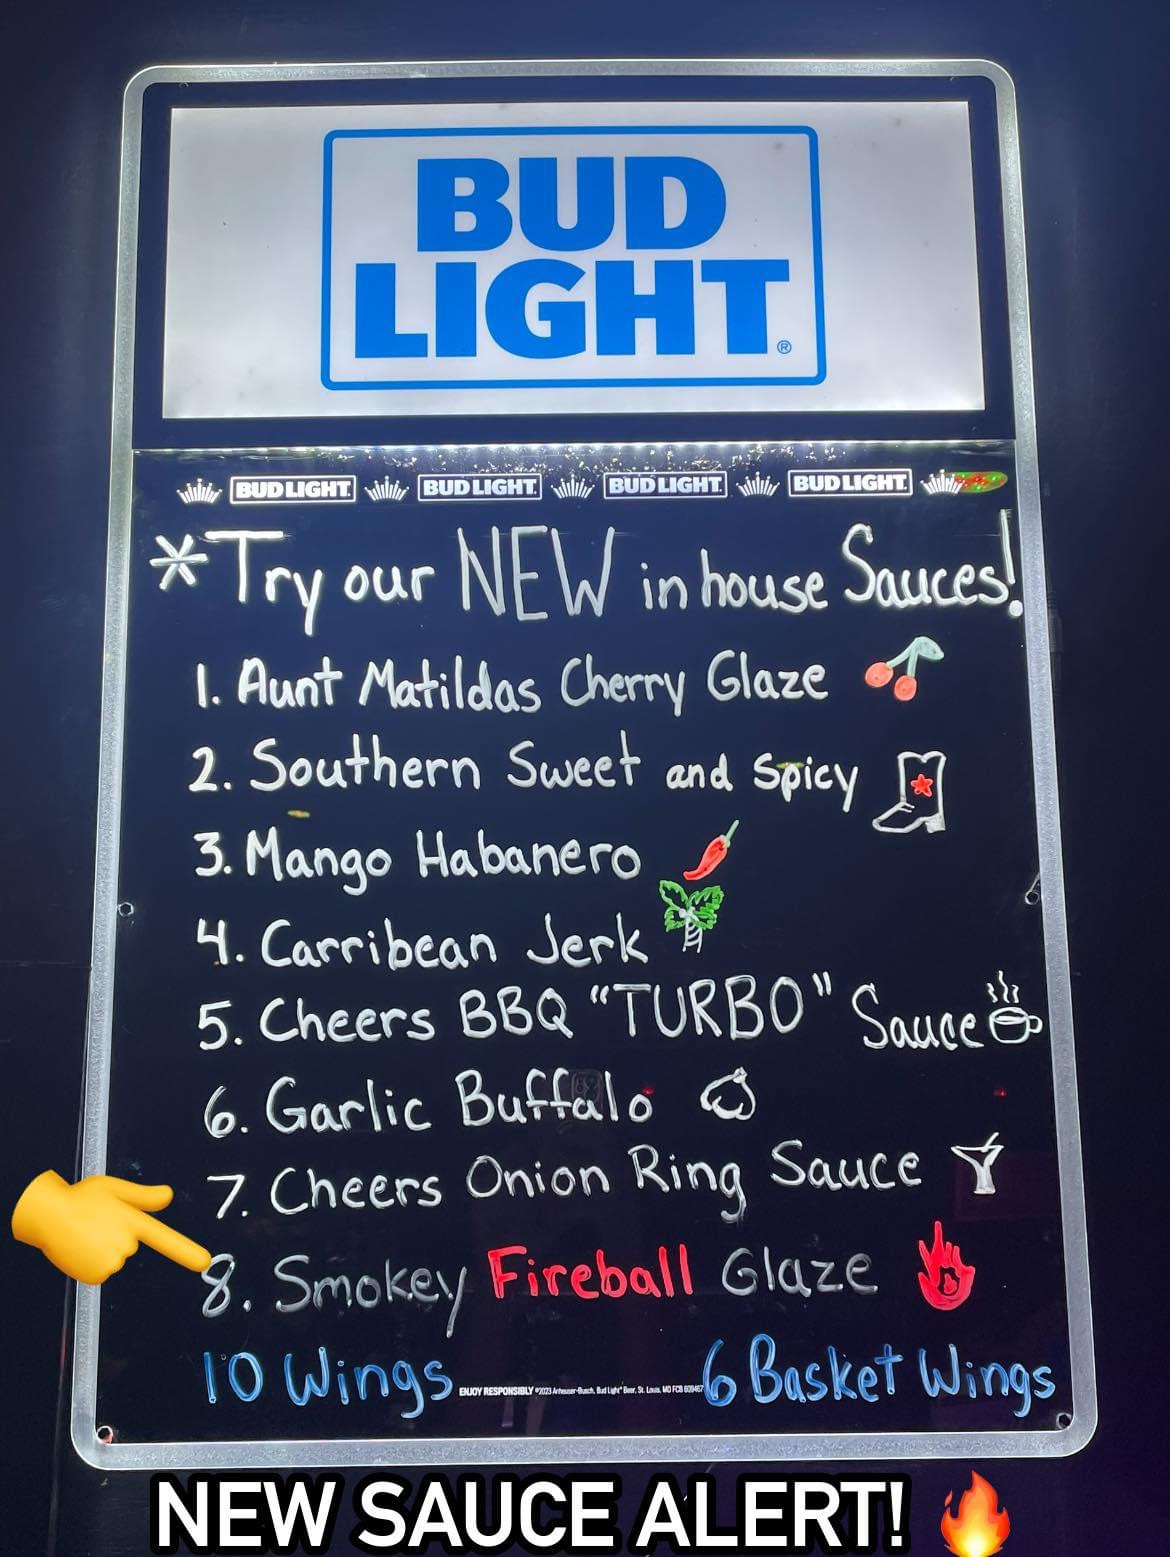 BUD
LIGHT®
BUD LIGHT. BUD LIGHT. BUD LIGHT. BUD LIGHT.
*Try our NEW in house Sauces!
1. Aunt Matildas Cherry Glaze
2. Southern Sweet and Spicy
3. Mango Habanero
4. Carribean Jerk
5. Cheers BBQ "TURBO" Sauce
6. Garlic Buffalo
7. Cheers Onion Ring Sauce
8. Smokey Fireball Glaze
10 Wings 6 Basket Wings
ENJOY RESPONSIBLY ©2023 Anheuser-Busch, Bud Light® Beer, St. Louis, MO
NEW SAUCE ALERT! 🔥